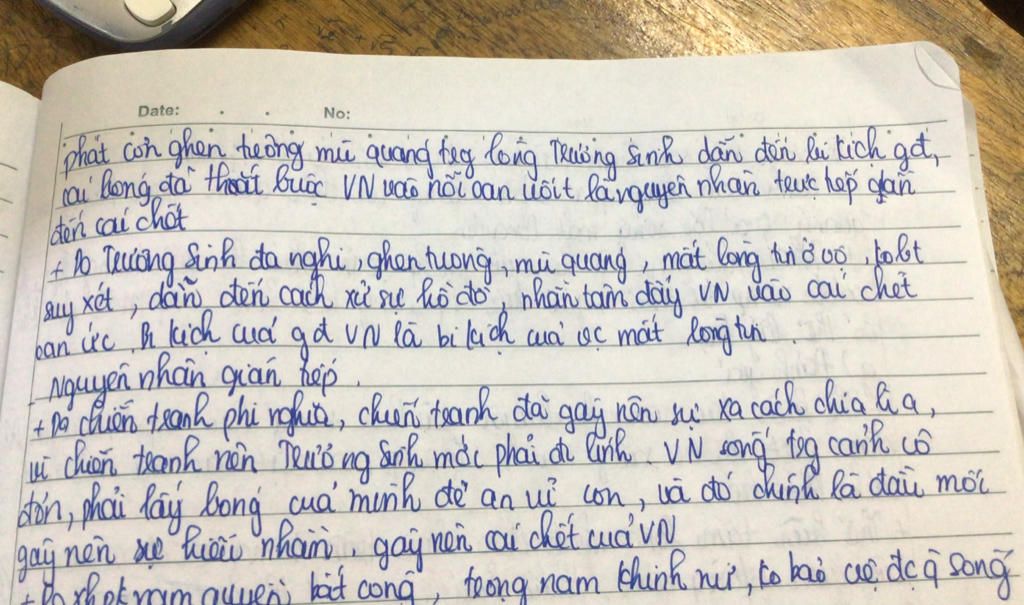 Date: . . No:
phát cơn ghen tuông mù quáng trg lòng Trương Sinh dẫn đến bi kịch gđ,
cái bóng đã thoắt buộc VN vào nỗi oan là nguyên nhân trực tiếp dẫn
đến cái chết
+ Do Trương Sinh đa nghi, ghen tuông, mù quáng, mất lòng tin ở vợ, ko bt
suy xét, dẫn đến cách xử sự hồ đồ nhẫn tâm đẩy VN vào cái chết
oan ức. Bi kịch của gđ VN là bi kịch của vc mất lòng tin.
Nguyên nhân gián tiếp.
+ Do chiến tranh phi nghĩa, chiến tranh đã gây nên sự xa cách chia lìa,
vì chiến tranh nên Trương Sinh mới phải đi lính. VN sống trg cảnh cô
đơn, phải lấy bóng của mình để an ủi con, và đó chính là đầu mối
gây nên sự hiểu nhầm, gây nên cái chết của VN
+ Do xh pk nam quyền bất công, trọng nam khinh nữ, ko bảo vệ đc q sống